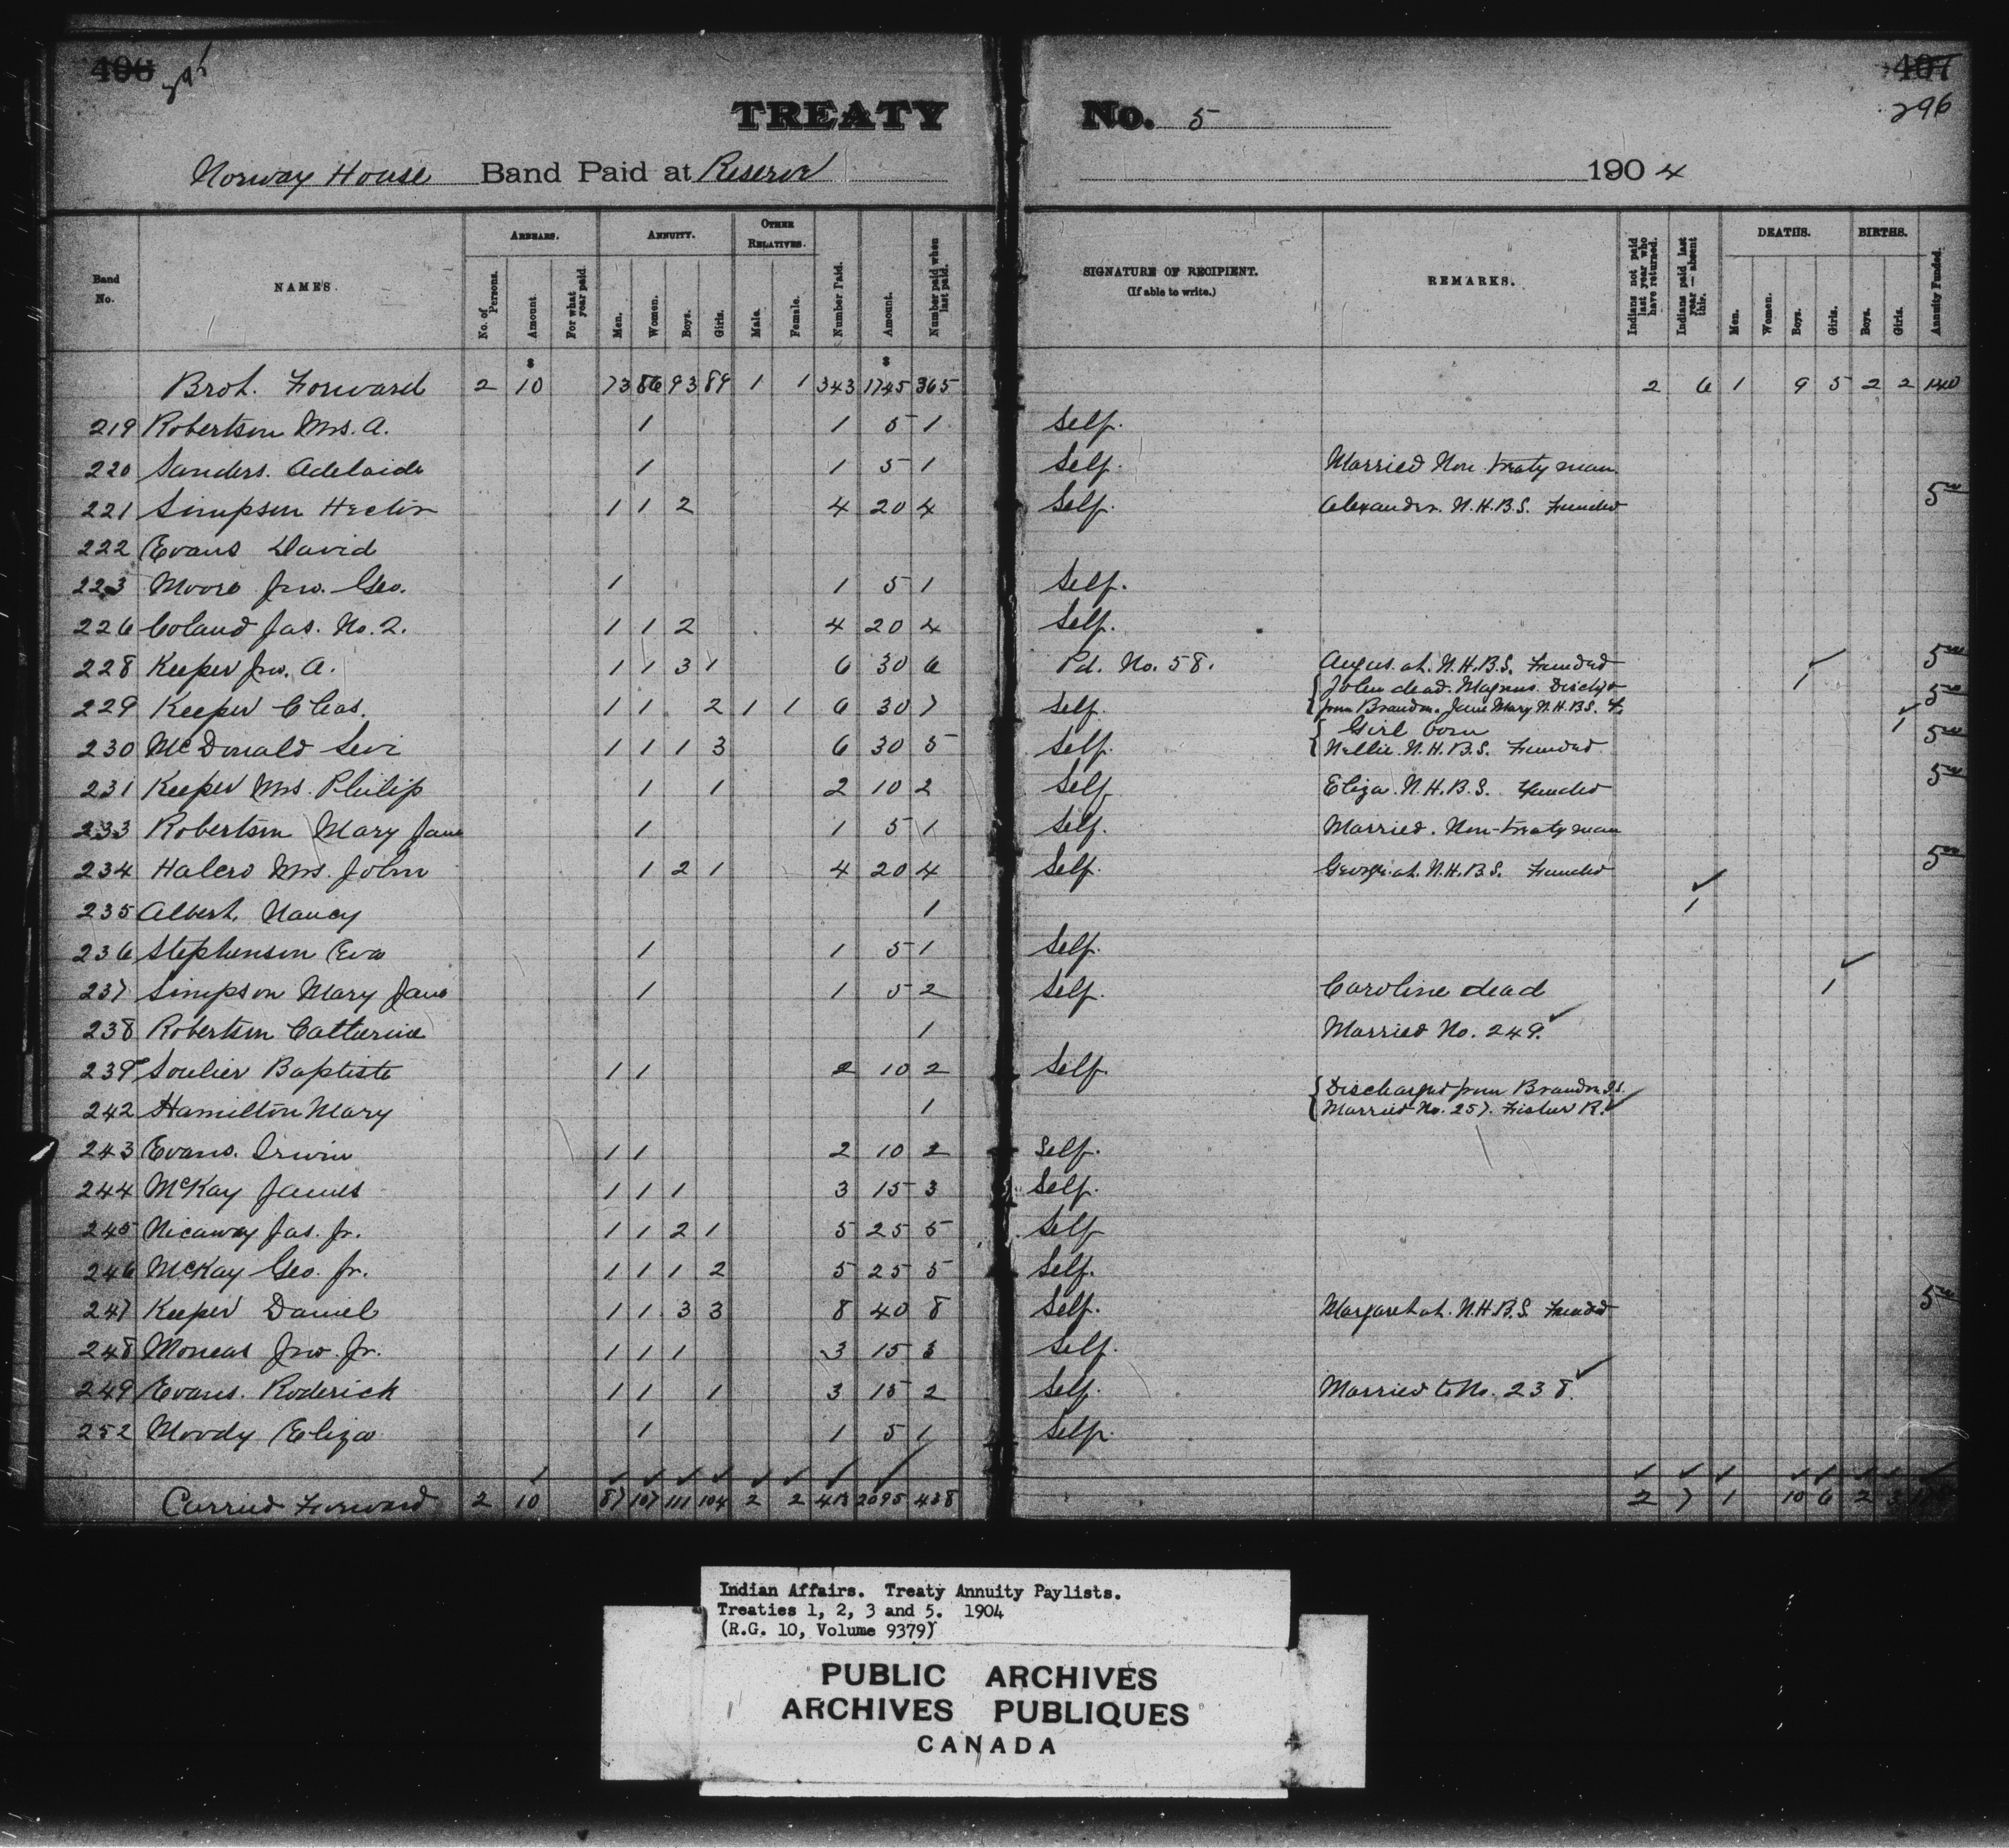 406 295 407
296
TREATY No. 5
Norway House Band Paid at Reserve 1904
Band No. NAMES. ARREARS. ANNUITY. OTHER RELATIVES. Number Paid. Amount. Number paid when last paid. SIGNATURE OF RECIPIENT. (If able to write.) REMARKS. Indians not paid last year who have returned. Indians paid last year—absent this. DEATHS. BIRTHS. Annuity Funded.
No. of Persons. Amount. For what year paid. Men. Women. Boys. Girls. Male. Female. Men. Women. Boys. Girls. Boys. Girls.
$ $
Brot. Forward 2 10 73 86 93 89 1 1 343 1745 365 2 6 1 9 5 2 2 140
219 Robertson Mrs. A. 1 1 5 1 Self.
220 Sanders. Adelaide 1 1 5 1 Self. Married Non treaty man
221 Simpson Hector 1 1 2 4 20 4 Self. Alexander. N.H.B.S. Funded 5 00
222 Evans David
223 Moore Jno. Geo. 1 1 5 1 Self.
226 Coland Jas. No. 2. 1 1 2 4 20 4 Self.
228 Keeper Jno. A. 1 1 3 1 6 30 6 Pd. No. 58. Angus at. N.H.B.S. Funded 5 00
John dead. Magnus Dischgd 1
229 Keeper Chas. 1 1 2 1 1 6 30 7 Self. from Brandon. Jane Mary N.H.B.S. F. 5 00
Girl born 1
230 McDonald Levi 1 1 1 3 6 30 5 Self. Nellie. N.H.B.S. Funded 5 00
231 Keeper Mrs. Philip 1 1 2 10 2 Self Eliza. N.H.B.S. Funded 5 00
233 Robertson Mary Jane 1 1 5 1 Self. Married. Non-treaty man
234 Halcro Mrs. John 1 2 1 4 20 4 Self. George at. N.H.B.S. Funded 5 00
235 Albert, Nancy 1 1
236 Stephenson Eva 1 1 5 1 Self.
237 Simpson Mary Jane 1 1 5 2 Self. Caroline dead 1
238 Robertson Catherine 1 Married No. 249.
239 Soulier Baptiste 1 1 2 10 2 Self.
Discharged from Brandon I.S.
242 Hamilton Mary 1 Married No. 257. Fisher R.
243 Evans. Irwin 1 1 2 10 2 Self.
244 McKay James 1 1 1 3 15 3 Self.
245 Nicaway Jas. Jr. 1 1 2 1 5 25 5 Self
246 McKay Geo. Jr. 1 1 1 2 5 25 5 Self.
247 Keeper Daniel 1 1 3 3 8 40 8 Self. Margaret at. N.H.B.S. Funded 5 00
248 Moneas Jno. Jr. 1 1 1 3 15 3 Self.
249 Evans. Roderick 1 1 1 3 15 2 Self. Married to No. 238.
252 Moody Eliza 1 1 5 1 Self.
Carried Forward 2 10 87 107 111 104 2 2 413 2095 438 2 7 1 10 6 2 3
Indian Affairs. Treaty Annuity Paylists.
Treaties 1, 2, 3 and 5. 1904
(R.G. 10, Volume 9379)
PUBLIC ARCHIVES
ARCHIVES PUBLIQUES
CANADA